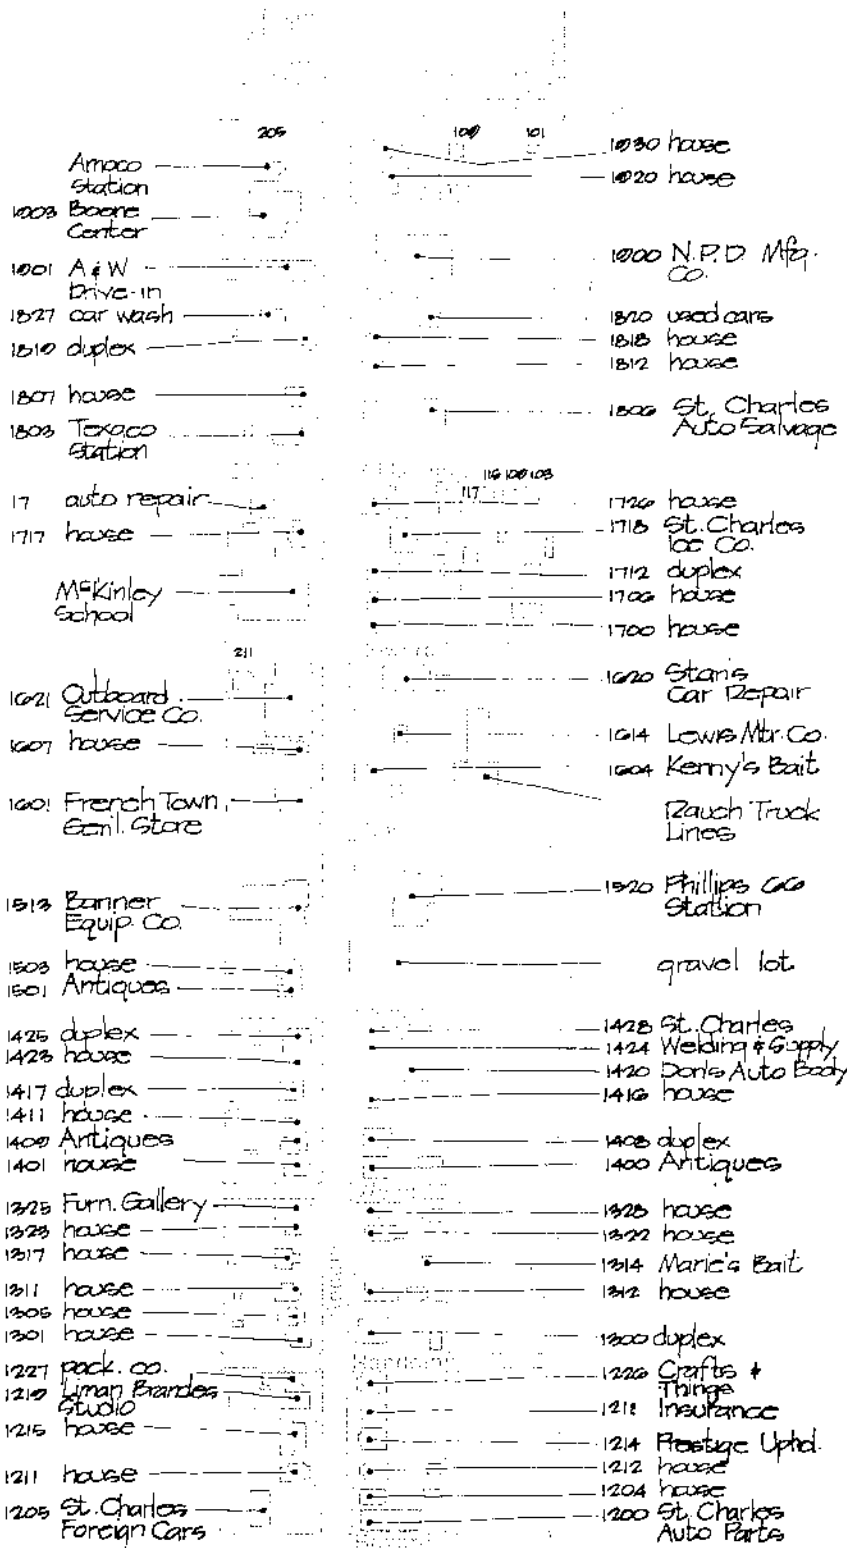 205
109
101
Amoco
Station
1903 Boone
Center
1901 A & W
Drive-in
1827 car wash
1819 duplex
1807 house
1803 Texaco
Station
17 auto repair
1717 house
McKinley
School
211
1621 Outboard
Service Co.
1607 house
1601 French Town
Genl. Store
1513 Banner
Equip. Co.
1503 house
1501 Antiques
1425 duplex
1423 house
1417 duplex
1411 house
1409 Antiques
1401 house
1325 Furn. Gallery
1323 house
1317 house
1311 house
1305 house
1301 house
1227 pack. co.
1219 Liman Brandes
Studio
1215 house
1211 house
1205 St. Charles
Foreign Cars
1930 house
1920 house
1900 N.P.D. Mfg.
Co.
1820 used cars
1818 house
1812 house
1806 St. Charles
Auto Salvage
115 109 103
117
1726 house
1718 St. Charles
Ice Co.
1712 duplex
1706 house
1700 house
1620 Stan's
Car Repair
1614 Lewis Mtr. Co.
1604 Kenny's Bait
Rauch Truck
Lines
1520 Phillips 66
Station
gravel lot
1428 St. Charles
1424 Welding & Supply
1420 Don's Auto Body
1416 house
1408 duplex
1400 Antiques
1328 house
1322 house
1314 Marie's Bait
1312 house
1300 duplex
1226 Crafts &
Things
1218 Insurance
1214 Prestige Uphol.
1212 house
1204 house
1200 St. Charles
Auto Parts